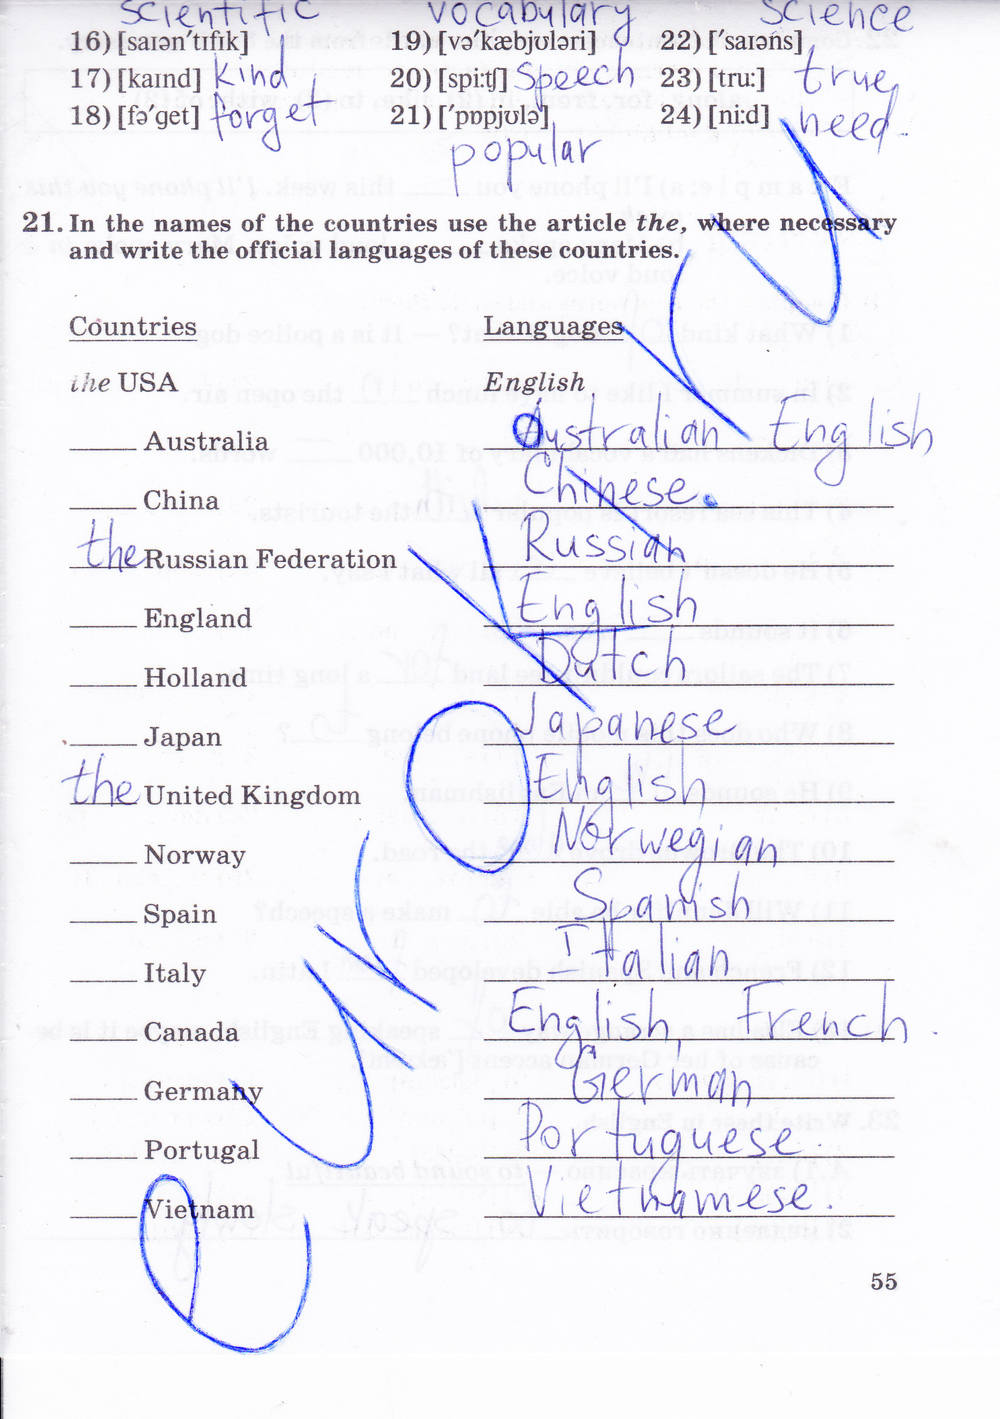 scientific vocabulary science
16) [saıən'tıfık] 19) [və'kæbjʊləri] 22) ['saıəns]
17) [kaınd] kind 20) [spi:tʃ] speech 23) [tru:] true
18) [fə'get] forget 21) ['pɒpjʊlə] 24) [ni:d] need
popular
21. In the names of the countries use the article the, where necessary
and write the official languages of these countries.
Countries Languages
the USA English
Australia Australian English
China Chinese.
the Russian Federation Russian
England English
Holland Dutch
Japan Japanese
the United Kingdom English
Norway Norwegian
Spain Spanish
Italy Italian
Canada English, French.
Germany German
Portugal Portuguese.
Vietnam Vietnamese.
55